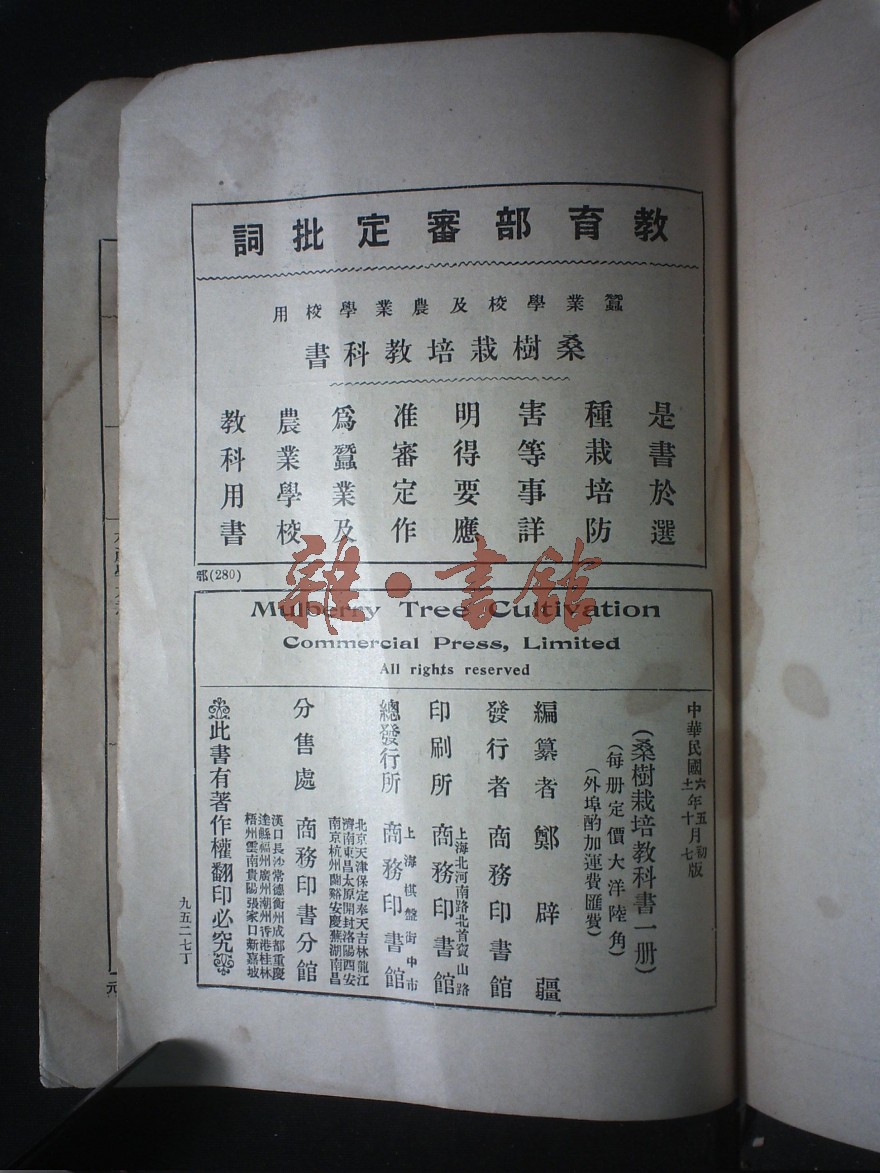 教育部審定批詞
蠶業學校及農業學校用
桑樹栽培教科書
是書於選
種栽培防
害等事詳
明得要應
准審定作
爲蠶業及
農業學校
教科用書
部(280)
雜·書館
Mulberry Tree Cultivation
Commercial Press, Limited
All rights reserved
中華民國六年五月初版
中華民國十一年十月七版
(桑樹栽培教科書一册)
(每册定價大洋陸角)
(外埠酌加運費匯費)
編纂者 鄭辟疆
發行者 商務印書館
印刷所 上海北河南路北首寶山路 商務印書館
總發行所 上海棋盤街中市 商務印書館
分售處 商務印書分館
北京天津保定奉天吉林龍江
濟南東昌太原開封洛陽西安
南京杭州蘭谿安慶蕪湖南昌
漢口長沙常德衡州成都重慶
達縣福州廣州潮州香港桂林
梧州雲南貴陽張家口新嘉坡
此書有著作權翻印必究
九五二七丁
元